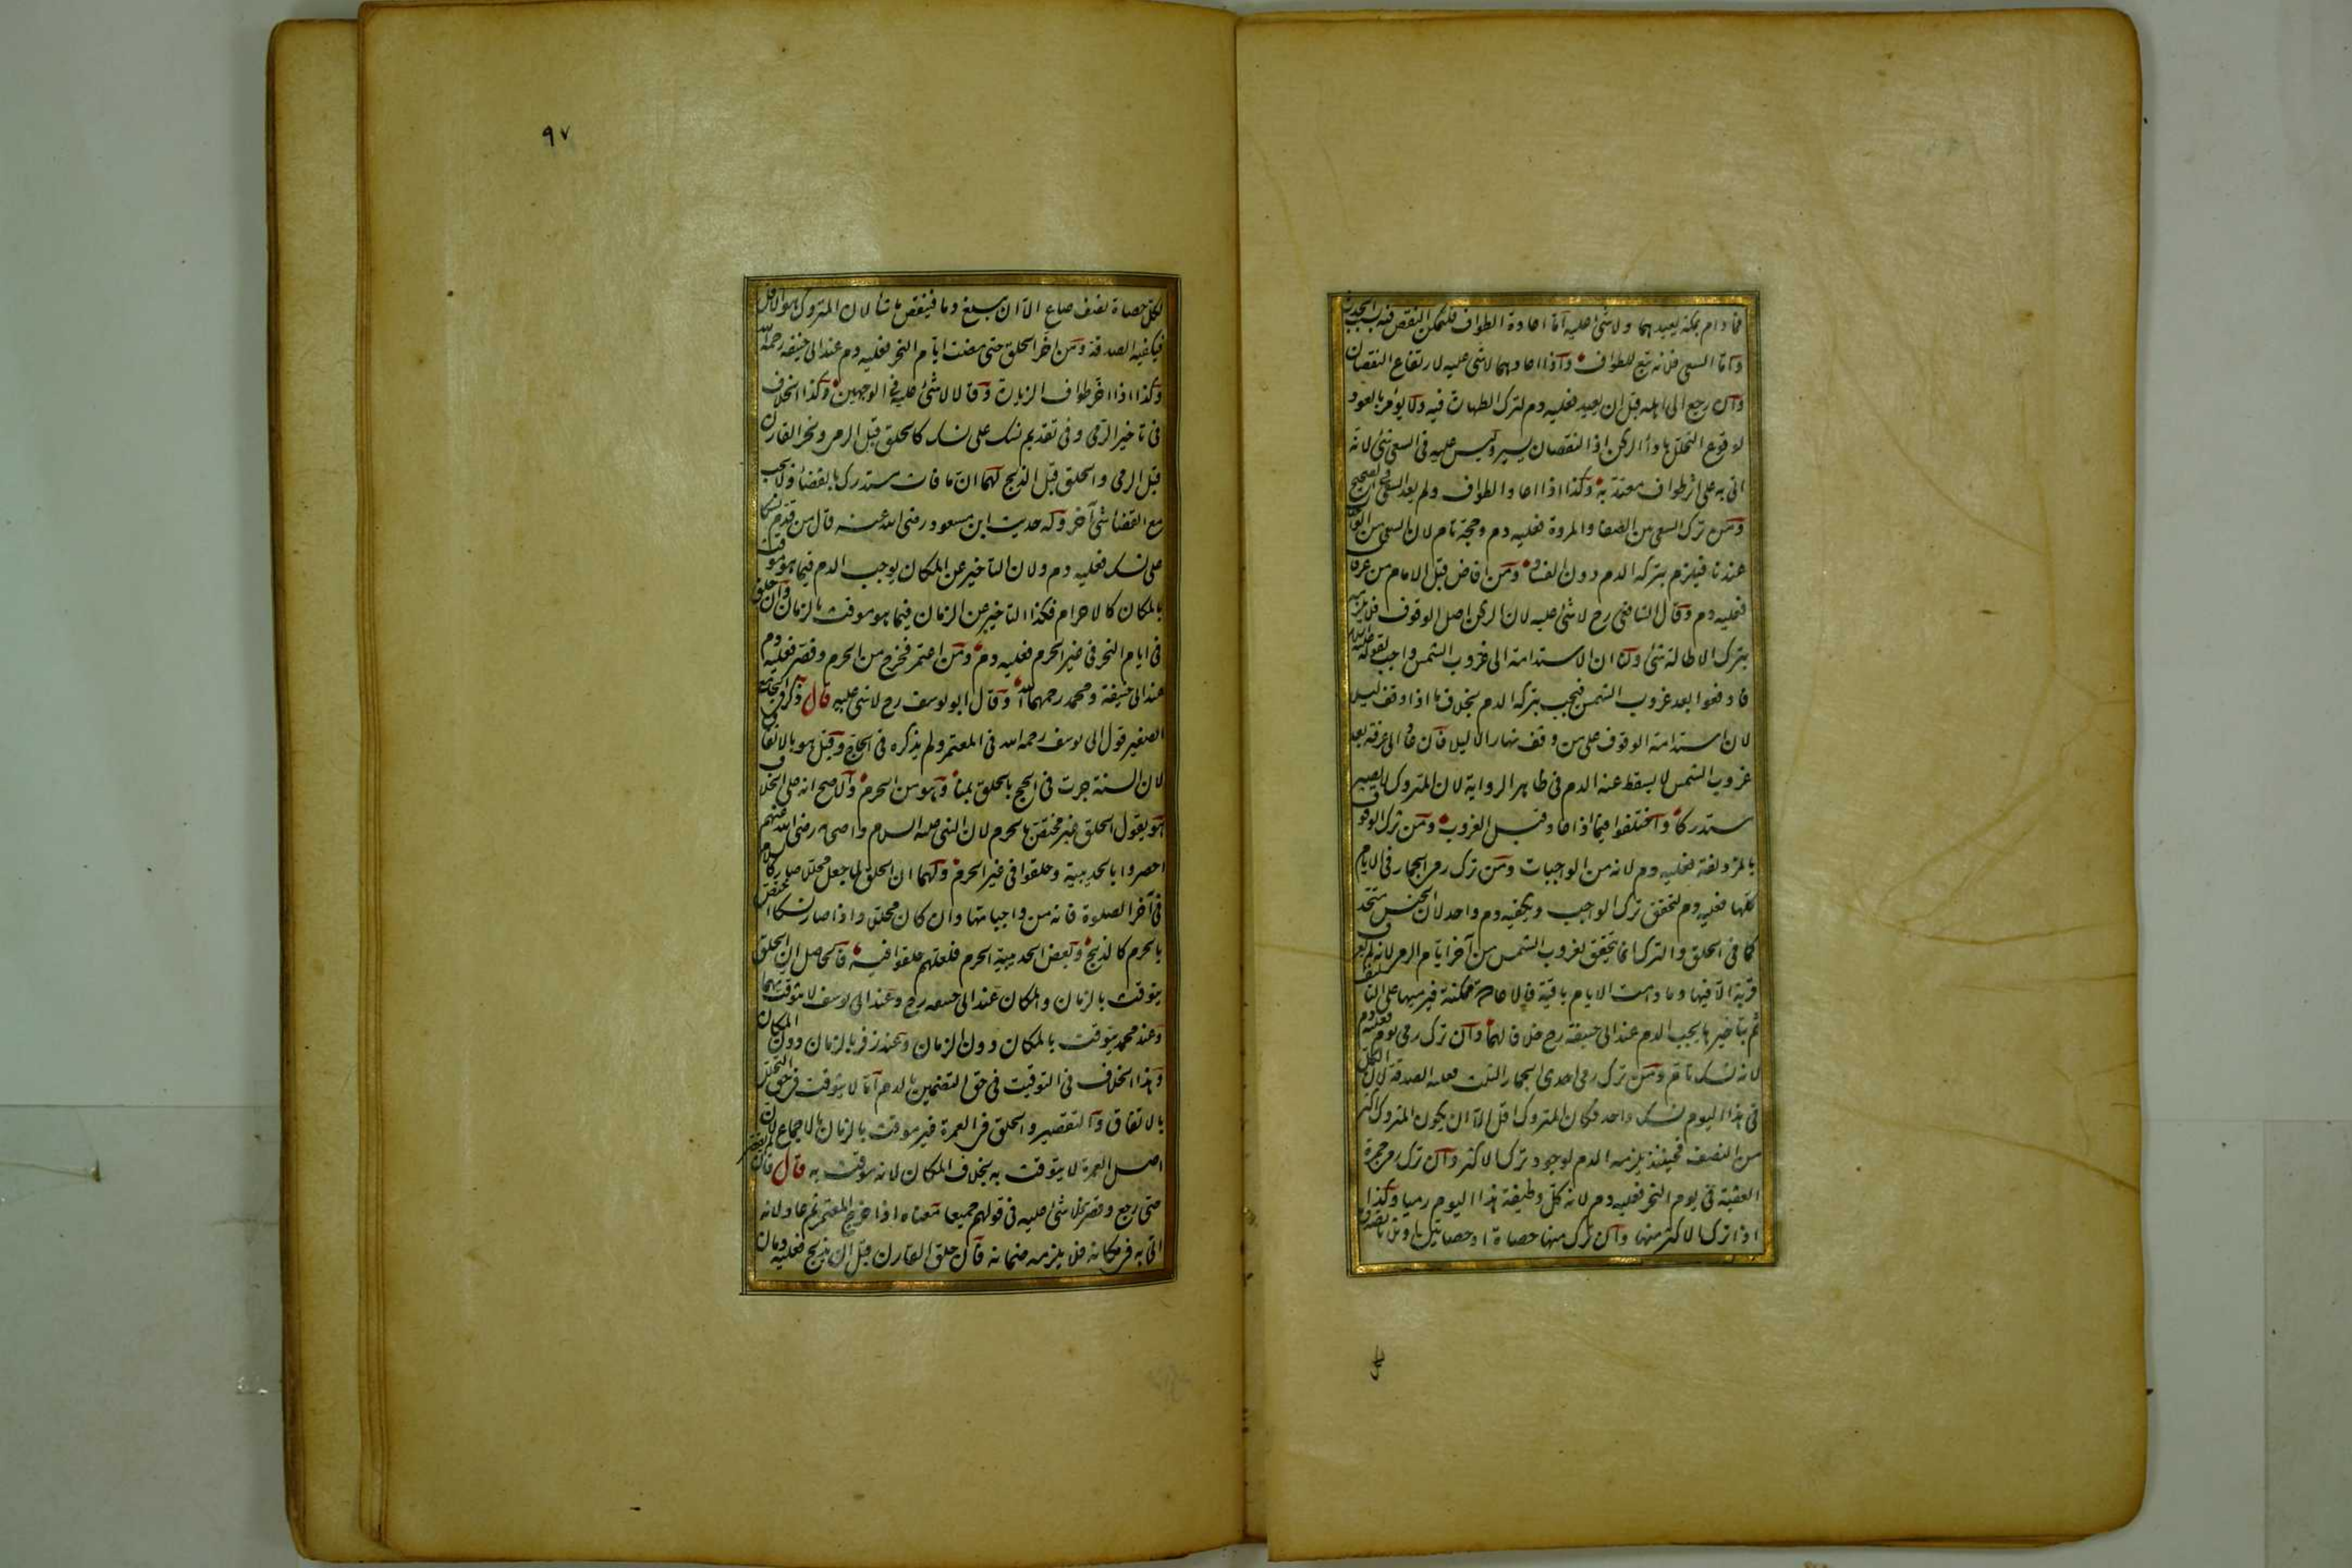 فما دام بمكة يعيدهما ولا شئ عليه اما اعادة الطواف فلتمكن النقص فيه بسبب الحدث
واما السعى فلانه تبع للطواف واذا اعادهما لا شئ عليه لارتفاع النقصان
وان رجع الى اهله قبل ان يعيد فعليه دم لترك الطهارة فيه ولا يؤمر بالعود
لوقوع التحلل باداء الركن اذ النقصان يسير وليس عليه فى السعى شئ لانه
اتى به على اثر طواف معتد به وكذا اذا اعاد الطواف ولم يعد السعى فى الصحيح
ومن ترك السعى من الصفا والمروة فعليه دم وحجه تام لان السعى من الواجبات
عندنا فيلزم بتركه الدم دون الفساد ومن افاض قبل الامام من عرفات
فعليه دم وقال الشافعى رح لا شئ عليه لان الركن اصل الوقوف فلا يلزمه
بترك الاطالة شئ ولنا ان الاستدامة الى غروب الشمس واجب لقوله عليه السلام
فادفعوا بعد غروب الشمس فيجب بتركه الدم بخلاف ما اذا وقف ليلا
لان استدامة الوقوف على من وقف نهارا لا ليلا فان عاد الى عرفة بعد
غروب الشمس لا يسقط عنه الدم فى ظاهر الرواية لان المتروك لا يصير
مستدركا واختلفوا فيما اذا عاد قبل الغروب ومن ترك الوقوف
بالمزدلفة فعليه دم لانه من الواجبات ومن ترك رمى الجمار فى الايام
كلها فعليه دم لتحقق ترك الواجب ويكفيه دم واحد لان الجنس متحد
كما فى الحلق والترك انما يتحقق بغروب الشمس من آخر ايام الرمى لانه لم يعرف
قربة الا فيها وما دامت الايام باقية فالاعادة ممكنة فيرميها على التاليف
ثم بتأخيرها يجب الدم عند ابى حنيفة رح خلافا لهما وان ترك رمى يوم فعليه دم
لانه نسك تام ومن ترك رمى احدى الجمار الثلث فعليه الصدقة لان الكل
فى هذا اليوم نسك واحد فكان المتروك اقل الا ان يكون المتروك اكثر
من النصف فحينئذ يلزمه الدم لوجود ترك الاكثر وان ترك رمى جمرة
العقبة فى يوم النحر فعليه دم لانه كل وظيفة هذا اليوم رميا وكذا
اذا ترك الاكثر منها وان ترك منها حصاة او حصاتين او ثلثا تصدق
لكل
٩٧
لكل حصاة نصف صاع الا ان يبلغ دما فينقص ما شاء لان المتروك هو الاقل
فيكفيه الصدقة ومن اخر الحلق حتى مضت ايام النحر فعليه دم عند ابى حنيفة رحمه الله
وكذا اذا اخر طواف الزيارة وقالا لا شئ عليه فى الوجهين وكذا الخلاف
فى تاخير الرمى وفى تقديم نسك على نسك كالحلق قبل الرمى ونحر القارن
قبل الرمى والحلق قبل الذبح لهما ان ما فات مستدرك بالقضاء ولا يجب
مع القضا شئ آخر وله حديث ابن مسعود رضى الله عنه قال من قدم نسكا
على نسك فعليه دم ولان التأخير عن المكان يوجب الدم فيما هو موقت
بالمكان كالاحرام فكذا التاخير عن الزمان فيما هو موقت بالزمان وان حلق
فى ايام النحر فى غير الحرم فعليه دم ومن اعتمر فخرج من الحرم وقصر فعليه دم
عند ابى حنيفة ومحمد رحمهما الله وقال ابو يوسف رح لا شئ عليه قال ذكر فى الجامع
الصغير قول ابى يوسف رحمه الله فى المعتمر ولم يذكره فى الحاج وقيل هو بالاتفاق
لان السنة جرت فى الحج بالحلق بمنا وهو من الحرم والاصح انه على الخلاف
هو يقول الحلق غير مختص بالحرم لان النبى عليه السلام واصحابه رضى الله عنهم
احصروا بالحديبية وحلقوا فى غير الحرم ولهما ان الحلق لما جعل محللا صار كالسلام
فى آخر الصلوة فانه من واجباتها وان كان محللا واذا صار نسكا اختص
بالحرم كالذبح وبعض الحديبية الحرم فلعلهم حلقوا فيه فالحاصل ان الحلق
يتوقت بالزمان والمكان عند ابى حنيفه رح وعند ابى يوسف لا يتوقت بهما
وعند محمد يتوقت بالمكان دون الزمان وعند زفر بالزمان دون المكان
وهذا الخلاف فى التوقيت فى حق التضمين بالدم اما لا يتوقت فى حق التحلل
بالاتفاق والتقصير والحلق فى العمرة غير موقت بالزمان بالاجماع لان
اصل العمرة لا يتوقت به بخلاف المكان لانه موقت به قال فان لم يقصر
حتى رجع وقصر فلا شئ عليه فى قولهم جميعا معناه اذا خرج المعتمر ثم عاد لانه
اتى به فى مكانه فلا يلزمه ضمانه فان حلق القارن قبل ان يذبح فعليه دمان